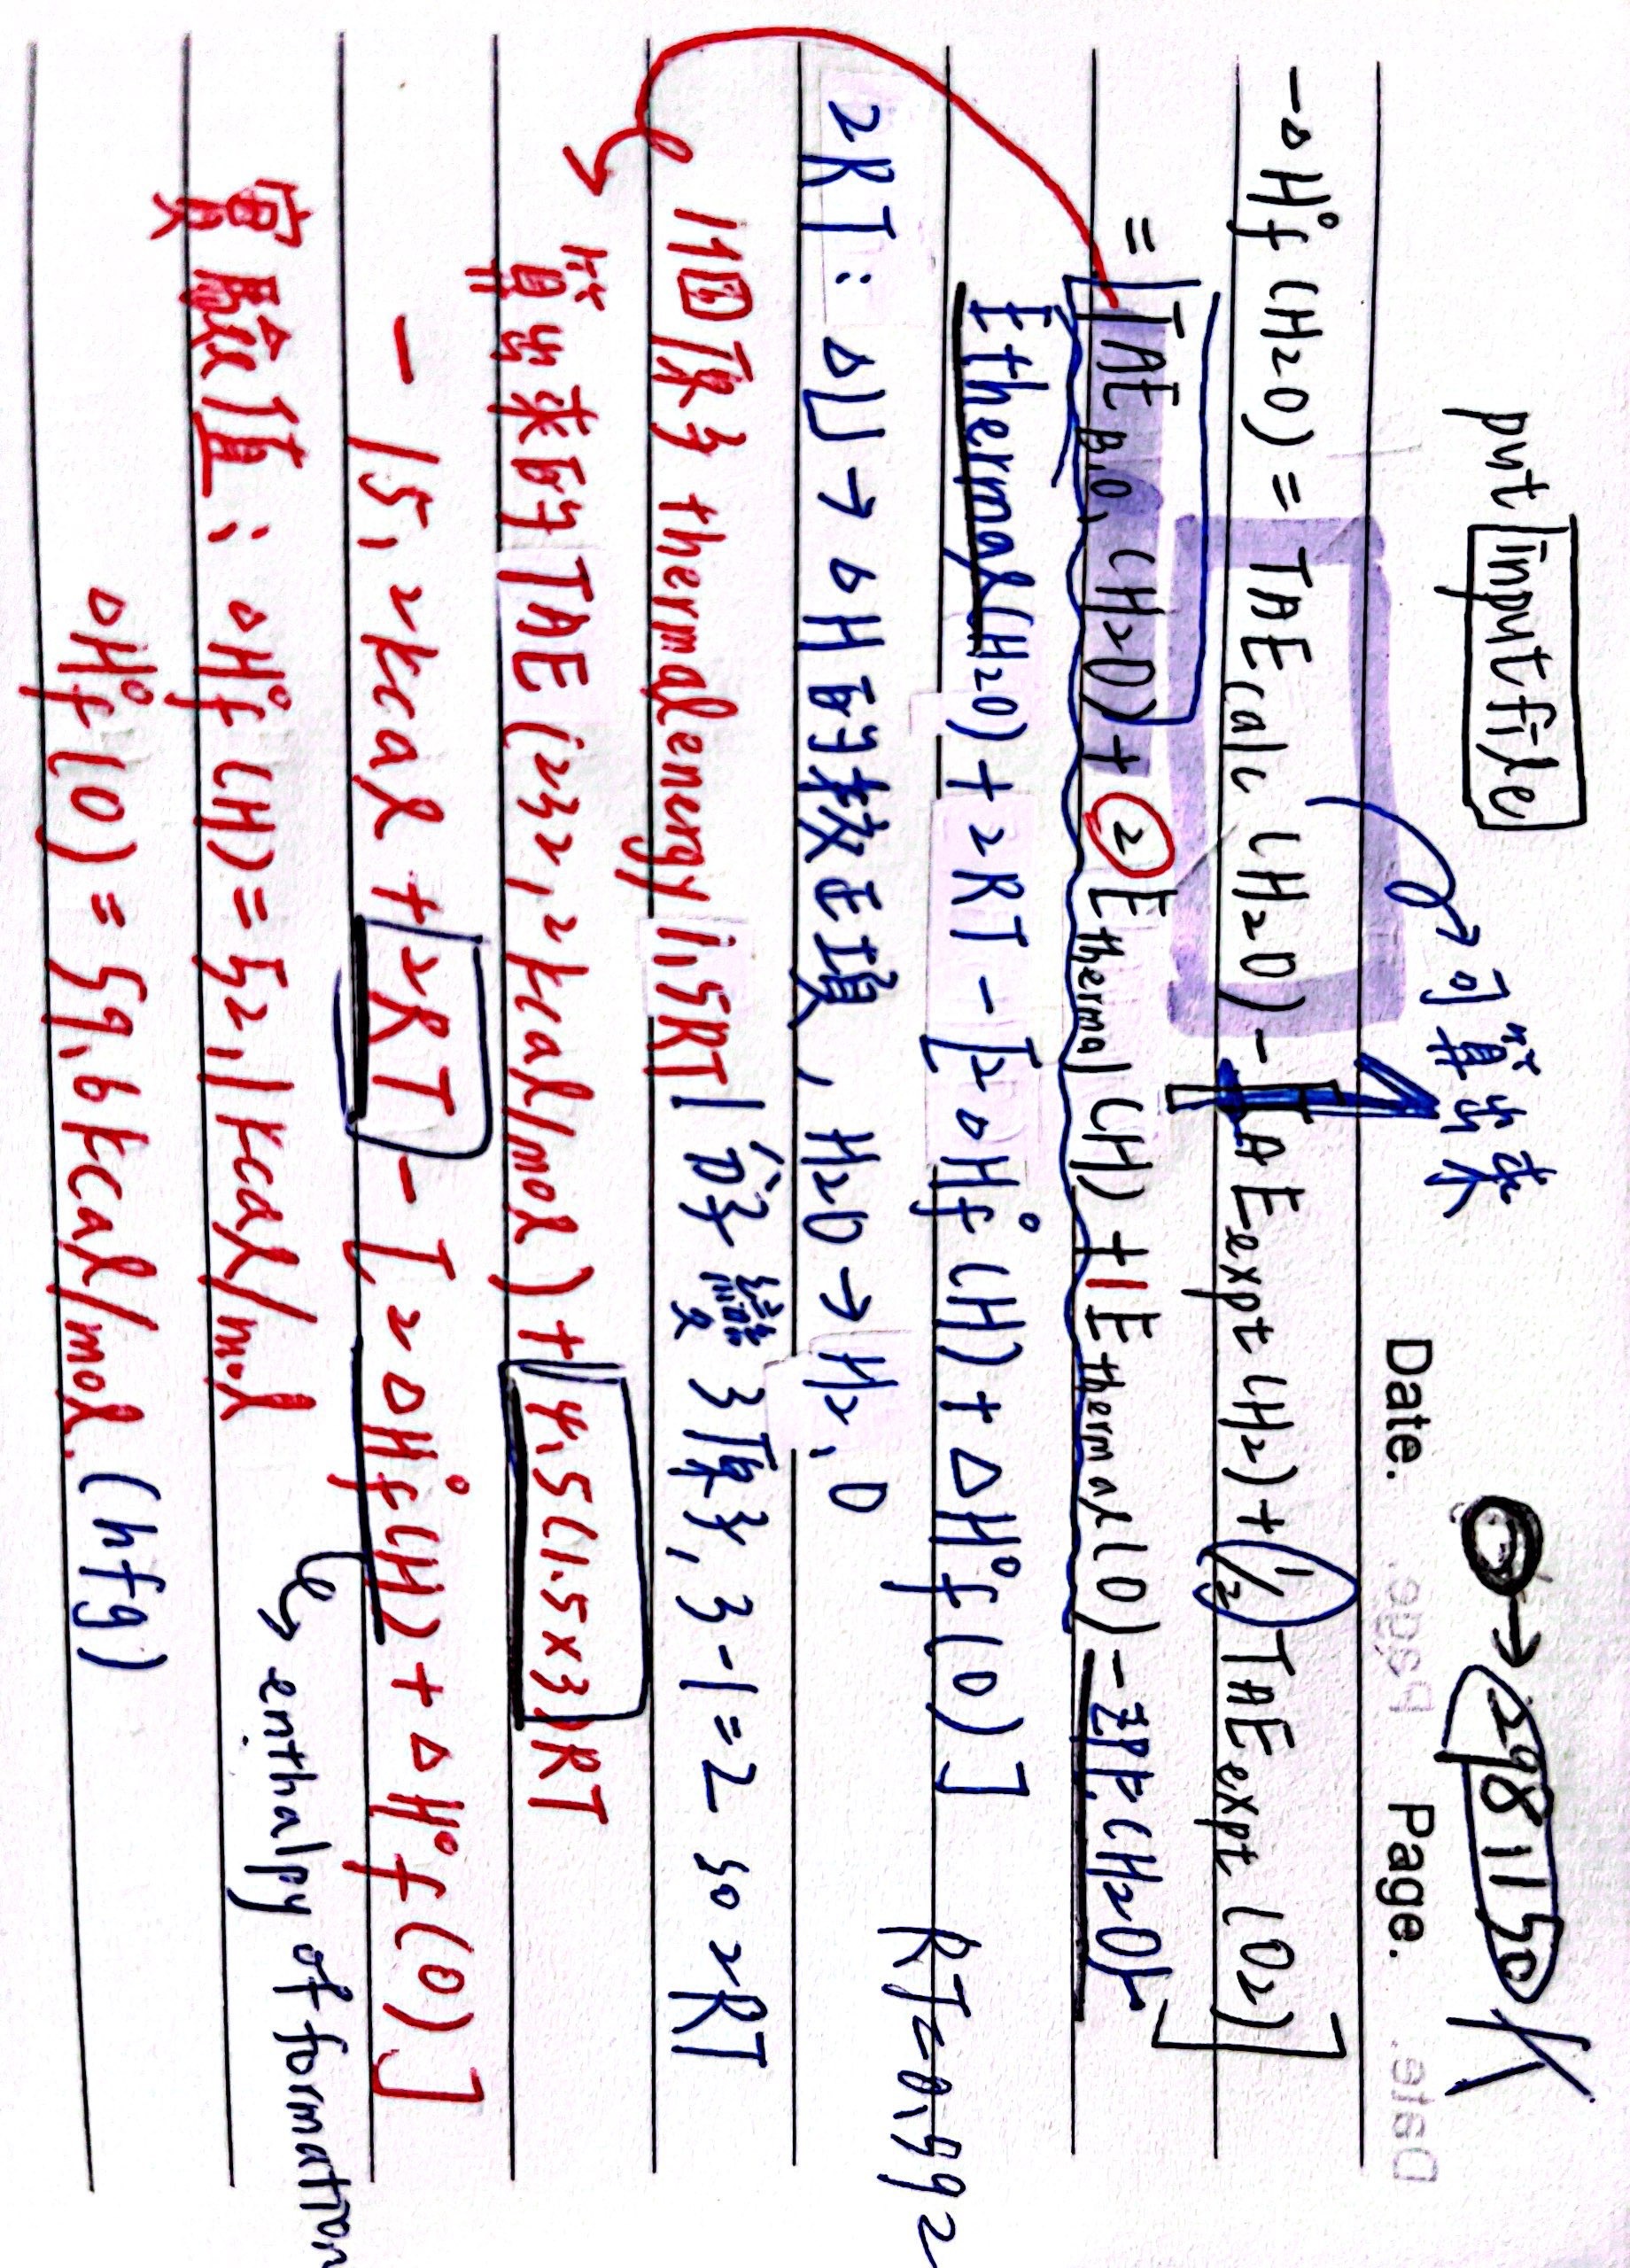 put inputfile
→ 可算出來
→ 298.150 K
Date. Page.
-ΔH°f (H2O) = TAEcalc (H2O) - [TAEexpt (H2) + 1/2 TAEexpt (O2)]
= [TAEB.O. (H2O) + 2 Ethermal (H) + 1 Ethermal (O) - ZPE (H2O) -
Ethermal (H2O) + 2RT - [2ΔH°f (H) + ΔH°f (O)]
RT = 0.592
2RT : ΔU → ΔH 的校正項, H2O → H2, O
1分子變3原子, 3-1=2 so 2RT
1個原子 thermal energy 1.5RT
算出來的 TAE (232.2 kcal/mol) + 4.5 (1.5×3) RT
- 15.2 kcal + 2RT - [2ΔH°f (H) + ΔH°f (O)]
→ enthalpy of formation
實驗值: ΔH°f (H) = 52.1 kcal/mol
ΔH°f (O) = 59.6 kcal/mol. (hfg)